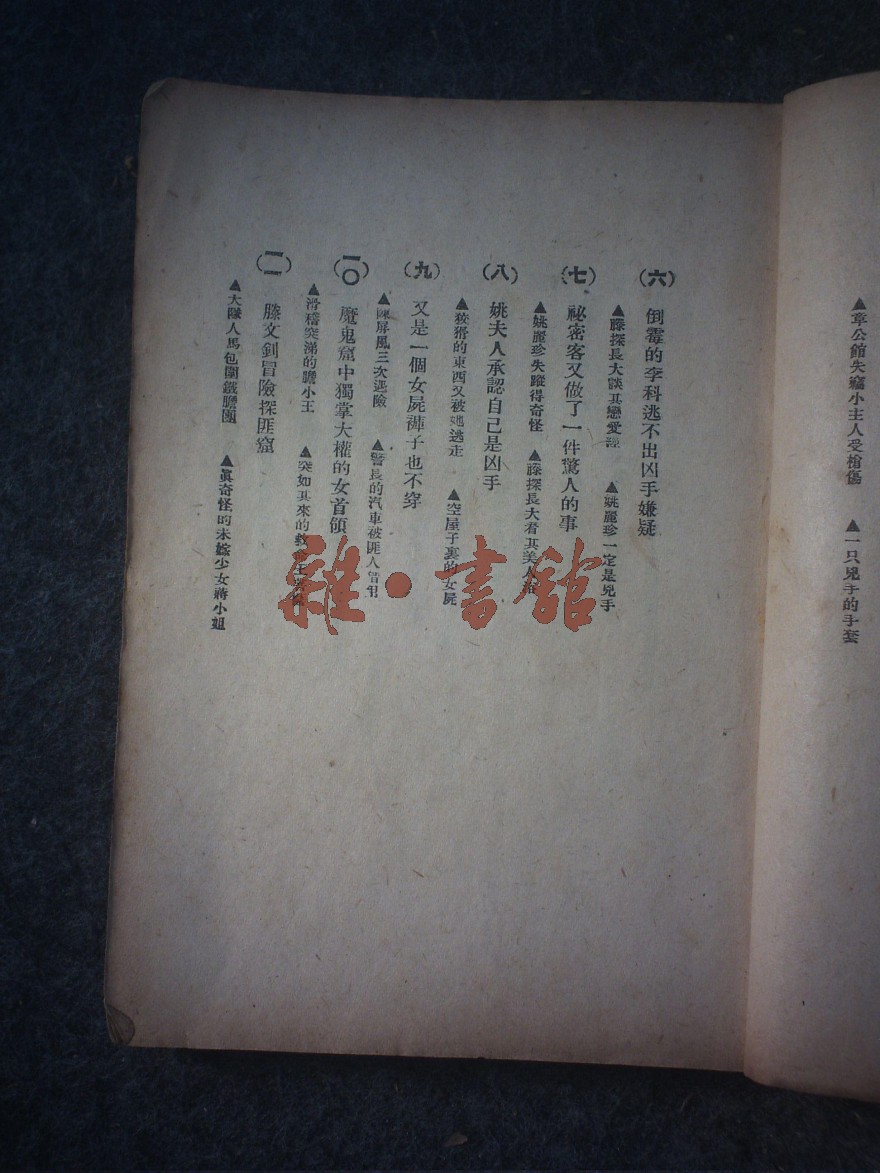 ▲章公館失竊小主人受槍傷　▲一只兇手的手套
(六)　倒霉的李科逃不出凶手嫌疑
▲藤探長大談其戀愛經　▲姚麗珍一定是兇手
(七)　祕密客又做了一件驚人的事
▲姚麗珍失蹤得奇怪　▲藤探長大看其美人浴
(八)　姚夫人承認自己是凶手
▲狡猾的東西又被她逃走　▲空屋子裏的女屍
(九)　又是一個女屍褲子也不穿
▲陳屏風三次遇險　▲警長的汽車被匪人借用
(一〇)　魔鬼窟中獨掌大權的女首領
▲滑稽突涕的膽小王　▲突如其來的救
(一一)　滕文釗冒險探匪窟
▲大隊人馬包圍鐵膽團　▲眞奇怪的未嫁少女蔣小姐
雜·書館